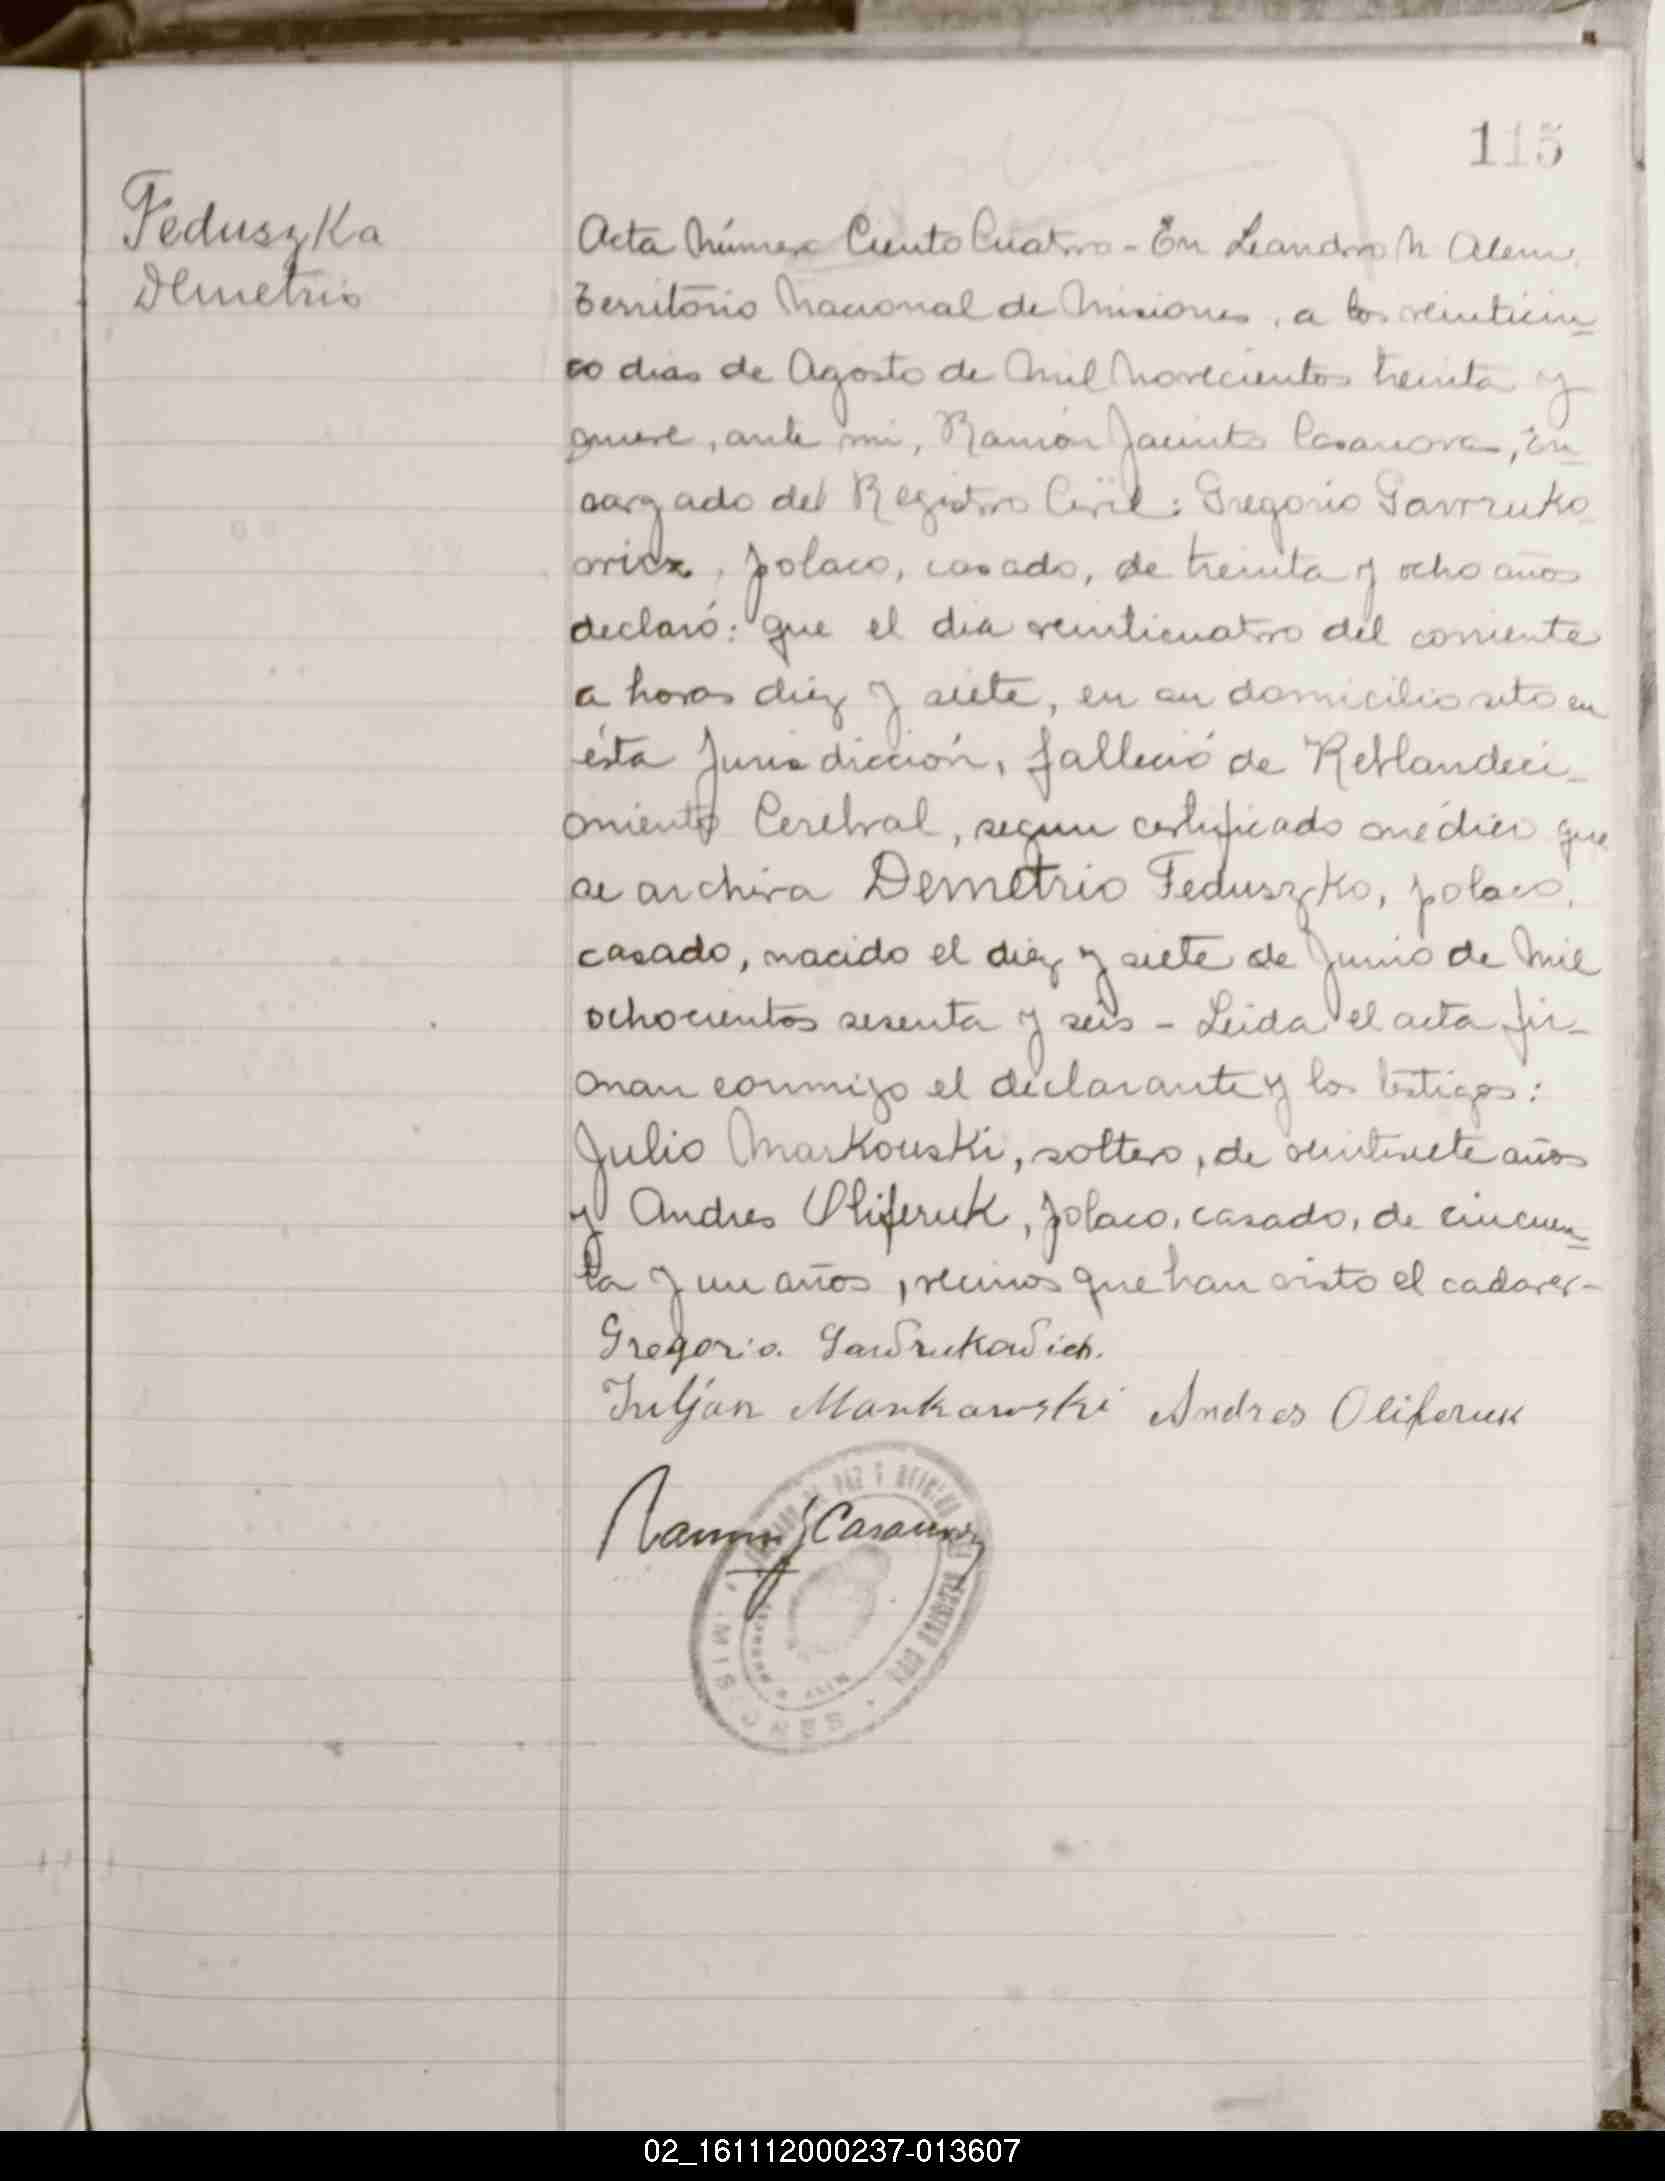 115
Feduszka
Demetrio
Acta Número Ciento Cuatro - En Leandro N Alem
Territorio Nacional de Misiones, a los veinticin=
co dias de Agosto de Mil Novecientos treinta y
nueve, ante mi, Ramón Jacinto Casanova, En=
cargado del Registro Civil: Gregorio Gavrruko
wicz, polaco, casado, de treinta y ocho años
declaró: que el dia veinticuatro del corriente
a horas diez y siete, en su domicilio sito en
ésta Jurisdicción, falleció de Reblandeci-
miento Cerebral, segun certificado médico que
se archiva Demetrio Feduszko, polaco,
casado, nacido el diez y siete de Junio de Mil
ochocientos sesenta y seis - Leida el acta fir-
man conmigo el declarante y los testigos:
Julio Markouski, soltero, de veintisiete años
y Andres Oliferuk, polaco, casado, de cincuen=
ta y un años, vecinos que han visto el cadaver-
Gregorio Gawrukowich.
Juljan Markowski Andres Oliferuk
Ramon J Casanova
JUZGADO DE PAZ Y OFICINA
MISIONES
02_161112000237-013607